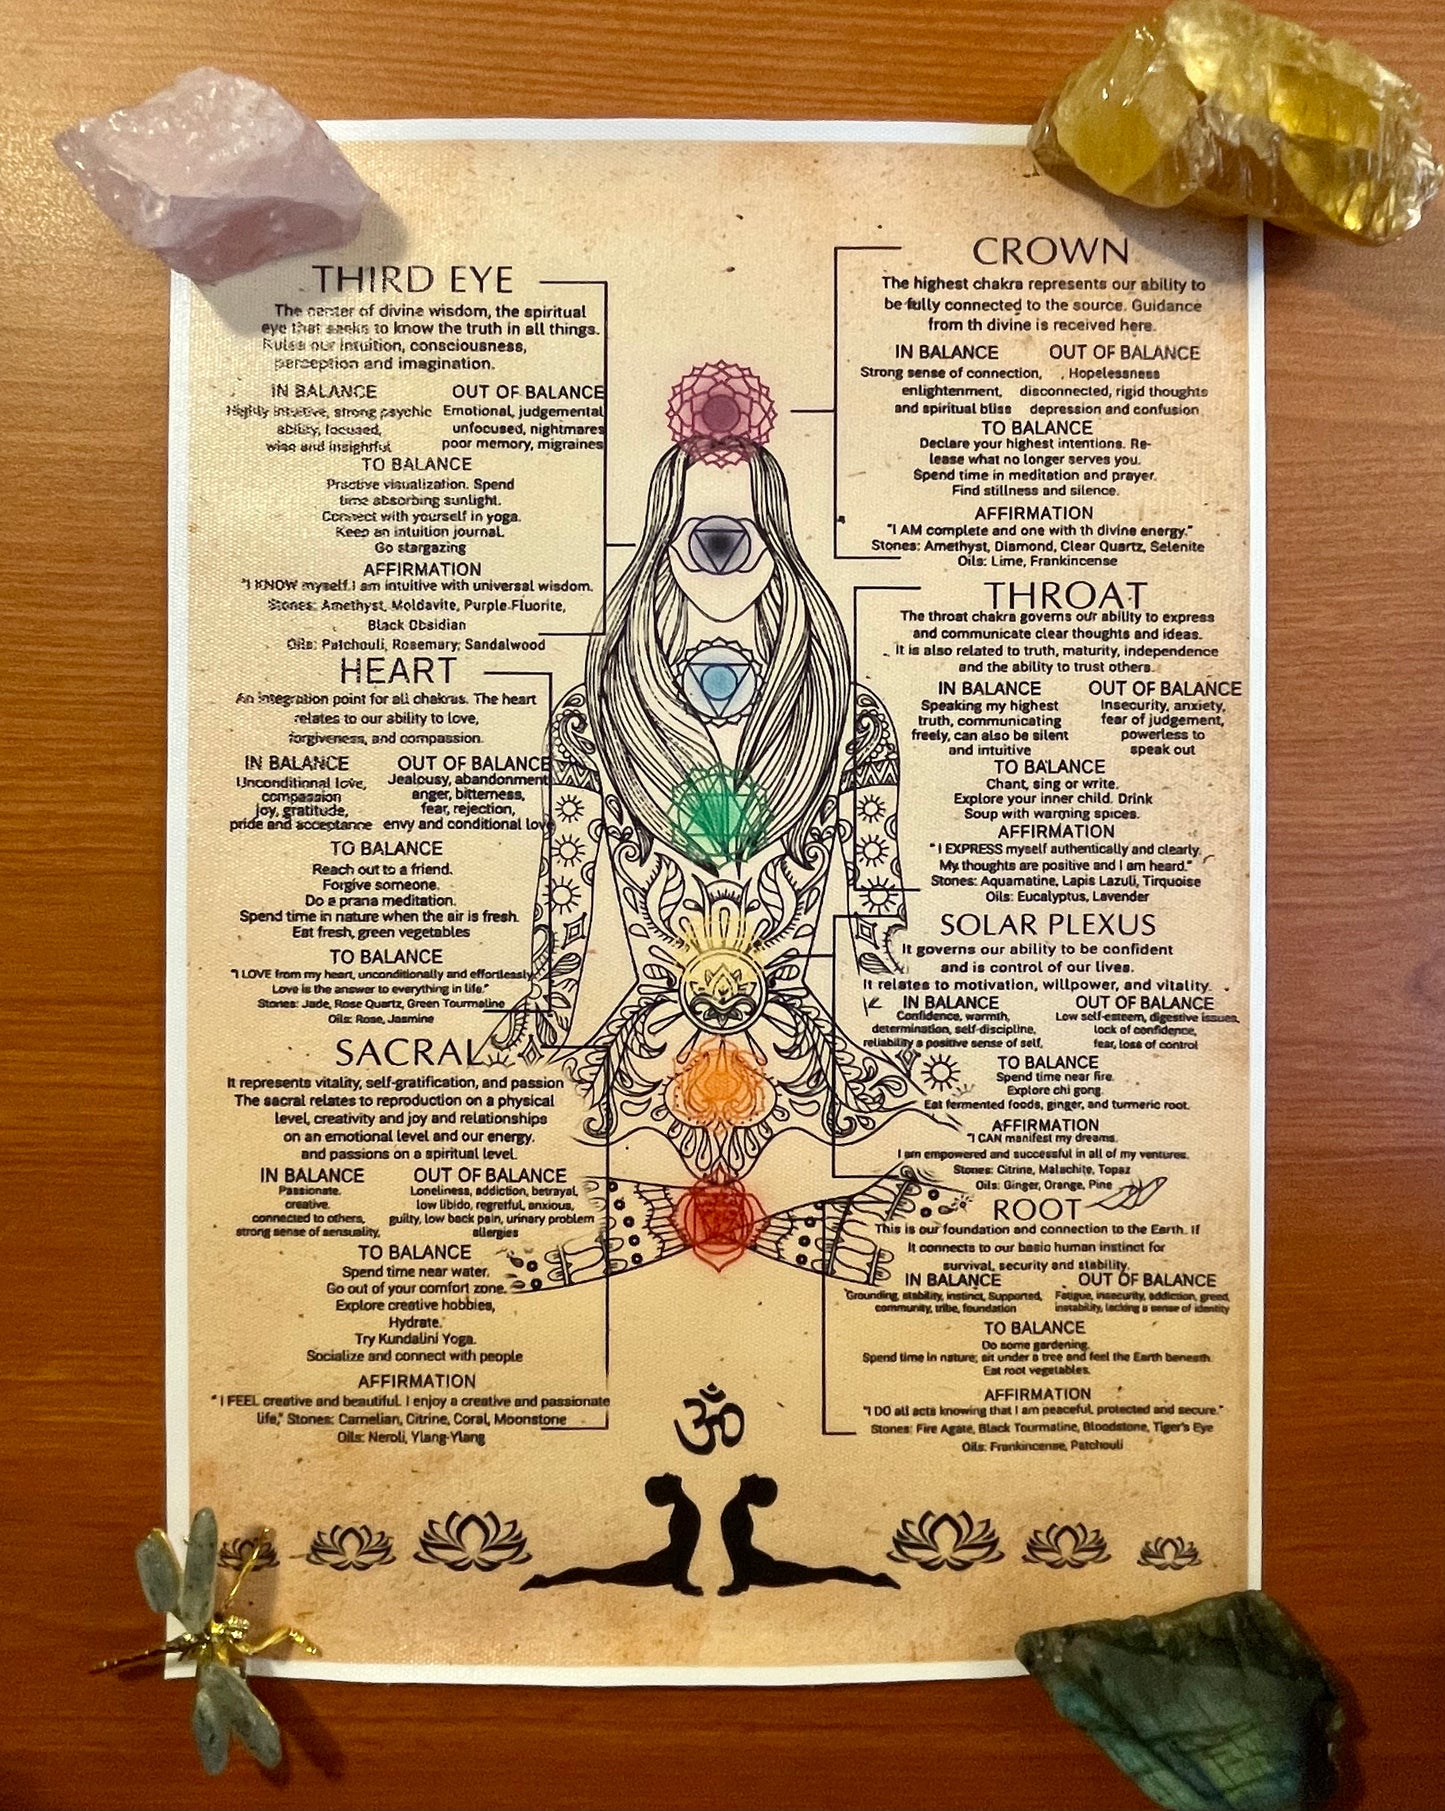 THIRD EYE
The center of divine wisdom, the spiritual
eye that seeks to know the truth in all things.
Rules our intuition, consciousness,
perception and imagination.
IN BALANCE
Highly intuitive, strong psychic
ability, focused,
wise and insightful
OUT OF BALANCE
Emotional, judgemental
unfocused, nightmares
poor memory, migraines
TO BALANCE
Practive visualization. Spend
time absorbing sunlight.
Connect with yourself in yoga.
Keep an intuition journal.
Go stargazing
AFFIRMATION
"I KNOW myself.I am intuitive with universal wisdom.
Stones: Amethyst, Moldavite, Purple Fluorite,
Black Obsidian
Oils: Patchouli, Rosemary, Sandalwood
HEART
An integration point for all chakras. The heart
relates to our ability to love,
forgiveness, and compassion.
IN BALANCE
Unconditional love,
compassion
joy, gratitude,
pride and acceptance
OUT OF BALANCE
Jealousy, abandonment
anger, bitterness,
fear, rejection,
envy and conditional love
TO BALANCE
Reach out to a friend.
Forgive someone.
Do a prana meditation.
Spend time in nature when the air is fresh.
Eat fresh, green vegetables
TO BALANCE
"I LOVE from my heart, unconditionally and effortlessly.
Love is the answer to everything in life."
Stones: Jade, Rose Quartz, Green Tourmaline
Oils: Rose, Jasmine
SACRAL
It represents vitality, self-gratification, and passion
The sacral relates to reproduction on a physical
level, creativity and joy and relationships
on an emotional level and our energy.
and passions on a spiritual level.
IN BALANCE
Passionate.
creative.
connected to others,
strong sense of sensuality,
OUT OF BALANCE
Loneliness, addiction, betrayal,
low libido, regretful, anxious,
guilty, low back pain, urinary problem
allergies
TO BALANCE
Spend time near water.
Go out of your comfort zone.
Explore creative hobbies,
Hydrate.
Try Kundalini Yoga.
Socialize and connect with people
AFFIRMATION
"I FEEL creative and beautiful. I enjoy a creative and passionate
life," Stones: Carnelian, Citrine, Coral, Moonstone
Oils: Neroli, Ylang-Ylang
CROWN
The highest chakra represents our ability to
be fully connected to the source. Guidance
from th divine is received here.
IN BALANCE
Strong sense of connection,
enlightenment,
and spiritual bliss
OUT OF BALANCE
Hopelessness
disconnected, rigid thoughts
depression and confusion
TO BALANCE
Declare your highest intentions. Re-
lease what no longer serves you.
Spend time in meditation and prayer.
Find stillness and silence.
AFFIRMATION
"I AM complete and one with th divine energy."
Stones: Amethyst, Diamond, Clear Quartz, Selenite
Oils: Lime, Frankincense
THROAT
The throat chakra governs our ability to express
and communicate clear thoughts and ideas.
It is also related to truth, maturity, independence
and the ability to trust others.
IN BALANCE
Speaking my highest
truth, communicating
freely, can also be silent
and intuitive
OUT OF BALANCE
Insecurity, anxiety,
fear of judgement,
powerless to
speak out
TO BALANCE
Chant, sing or write.
Explore your inner child. Drink
Soup with warming spices.
AFFIRMATION
"I EXPRESS myself authentically and clearly.
My thoughts are positive and I am heard."
Stones: Aquamatine, Lapis Lazuli, Tirquoise
Oils: Eucalyptus, Lavender
SOLAR PLEXUS
It governs our ability to be confident
and is control of our lives.
It relates to motivation, willpower, and vitality.
IN BALANCE
Confidence, warmth,
determination, self-discipline,
reliability a positive sense of self,
OUT OF BALANCE
Low self-esteem, digestive issues,
lock of confidence,
fear, loss of control
TO BALANCE
Spend time near fire.
Explore chi gong.
Eat fermented foods, ginger, and turmeric root.
AFFIRMATION
"I CAN manifest my dreams.
I am empowered and successful in all of my ventures.
Stones: Citrine, Malachite, Topaz
Oils: Ginger, Orange, Pine
ROOT
This is our foundation and connection to the Earth. If
It connects to our basic human instinct for
survival, security and stability.
IN BALANCE
Grounding, stability, instinct, Supported,
community, tribe, foundation
OUT OF BALANCE
Fatigue, insecurity, addiction, greed,
instability, lacking a sense of identity
TO BALANCE
Do some gardening.
Spend time in nature; sit under a tree and feel the Earth beneath.
Eat root vegetables.
AFFIRMATION
"I DO all acts knowing that I am peaceful, protected and secure."
Stones: Fire Agate, Black Tourmaline, Bloodstone, Tiger's Eye
Oils: Frankincense, Patchouli
ॐ